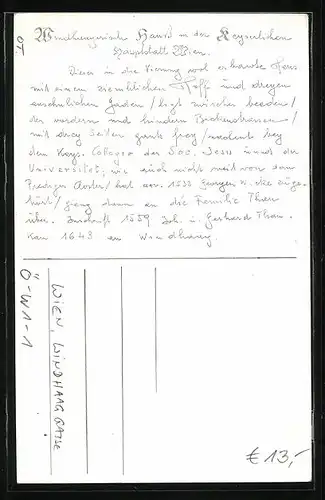 Windhaagerisch Hauß in der Keyserlichen
Haupstatt Wien.
Dises in die Vierung wol erbawte Haus
mit einem ziemblichen Hoff und dreyen
ansehnlichen Gaden / ligt zwischen beeden /
der vordern und hindern Böckenstrassen /
mit drey Seiten gantz frey / nechent bey
dem Kays. Collegio der Soc. Jesu unnd der
Universitet, wie auch nicht weit von dem
Prediger Closter / hat anv. 1533 Georgen
hört / gieng dann an die Familie Thau
über. Inschrift 1559 Joh. u. Gerhard Thau.
Kam 1643 an Windhaag.
OT.
Ö-W1-1
WIEN, WINDHAAGGASSE
€ 13,-